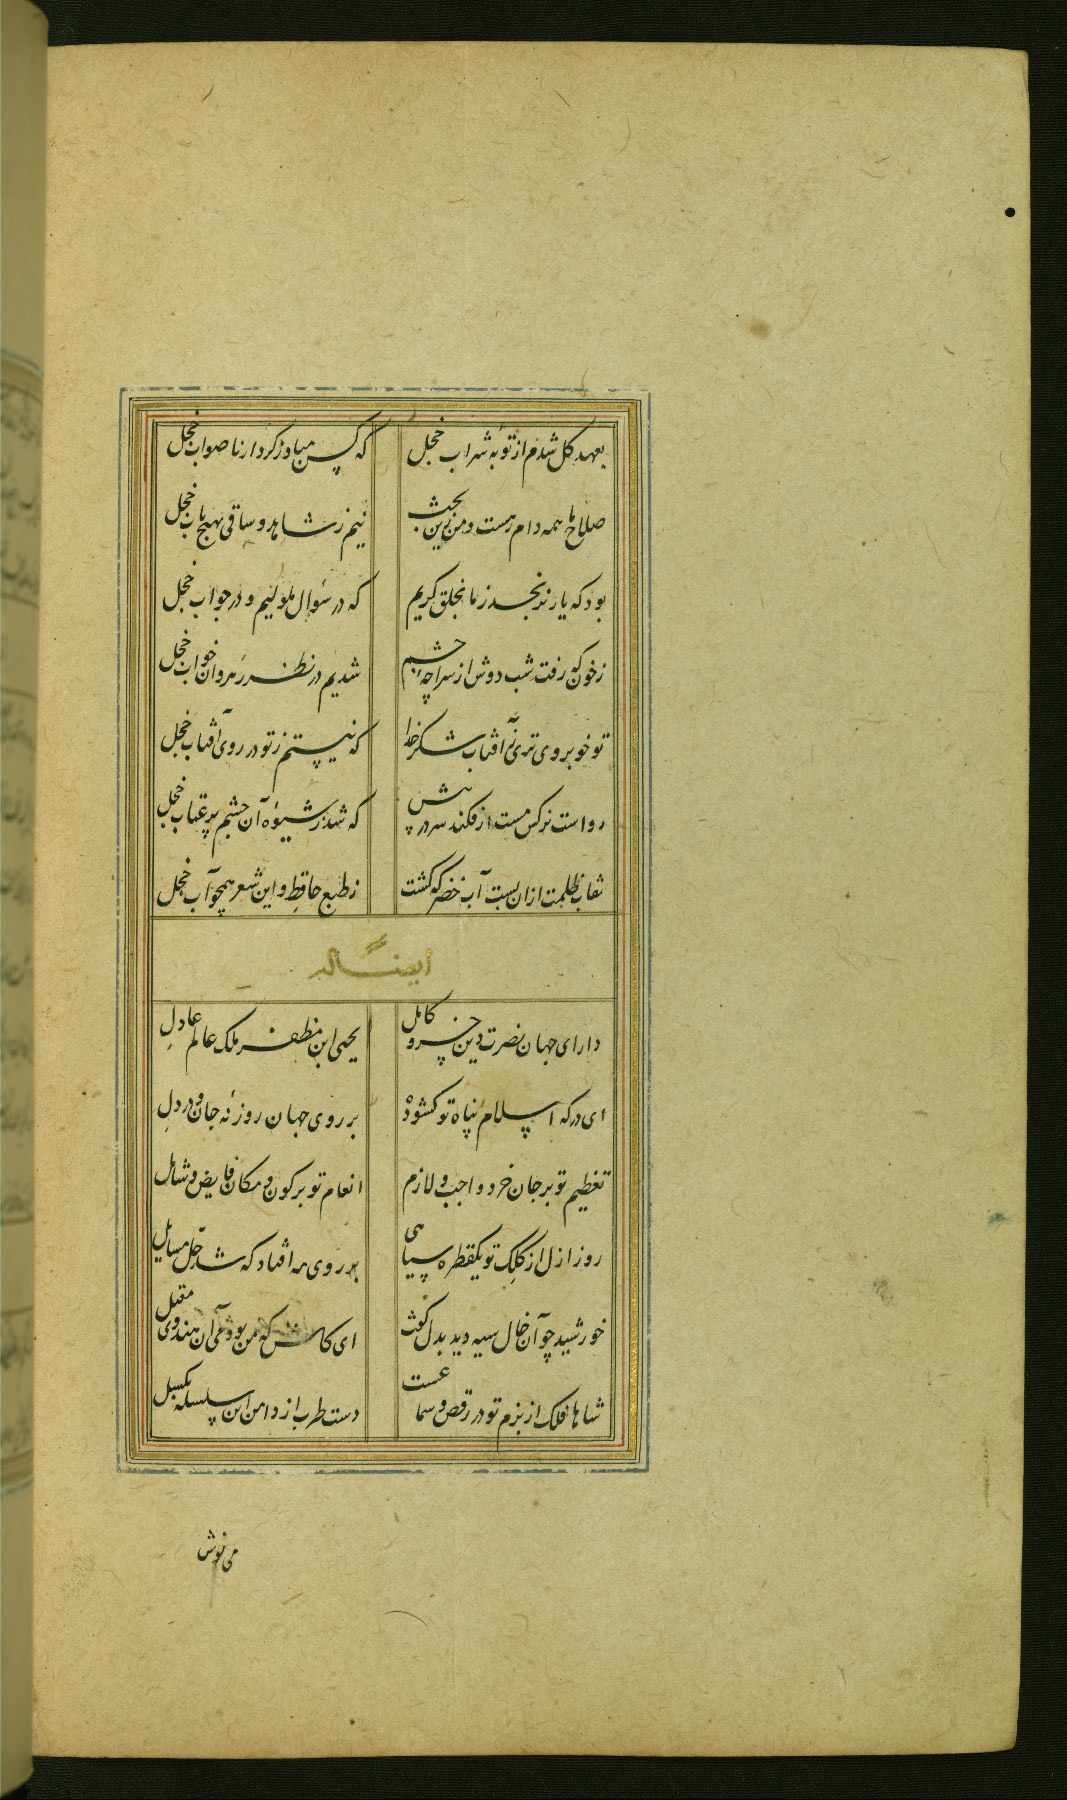 بعهد کل شدم از توبه شراب خجل که کس مباد زکردار ناصواب خجل
صلاح ما همه دام رهست و من زین بحث نیم ز شاهد و ساقی بهیچ باب خجل
بود که یار نرنجد ز ما بخلق کریم که در سؤال ملولیم و در جواب خجل
زخون که رفت شب دوش از سراچه چشم شدیم در نظر رهروان خواب خجل
تو خوبروی تری ز آفتاب شکر خدا که نیستم ز تو در روی آفتاب خجل
رواست نرکس مست ار فکند سر در پیش که شد ز شیوه آن چشم پر عتاب خجل
نقاب ظلمت از ان بست آب خضر که کشت ز طبع حافظ و این شعر همچو آب خجل
ایضاً له
دارای جهان نصرت دین خسرو کامل یحیی ابن مظفر ملک عالم عادل
ای درکه اسلام پناه تو کشوده بر روی جهان روزنه جان و در دل
تعظیم تو بر جان خرد واجب و لازم انعام تو بر کون و مکان فایض و شامل
روز ازل از کلک تو یکقطره سیاهی بر روی مه افتاد که شد حل مسایل
خورشید چو آن خال سیه دید بدل کفت ای کاش که من بودمی آن هندوی مقبل
شاها فلک از بزم تو در رقص و سماعست دست طرب از دامن این سلسله مکسل
می نوش